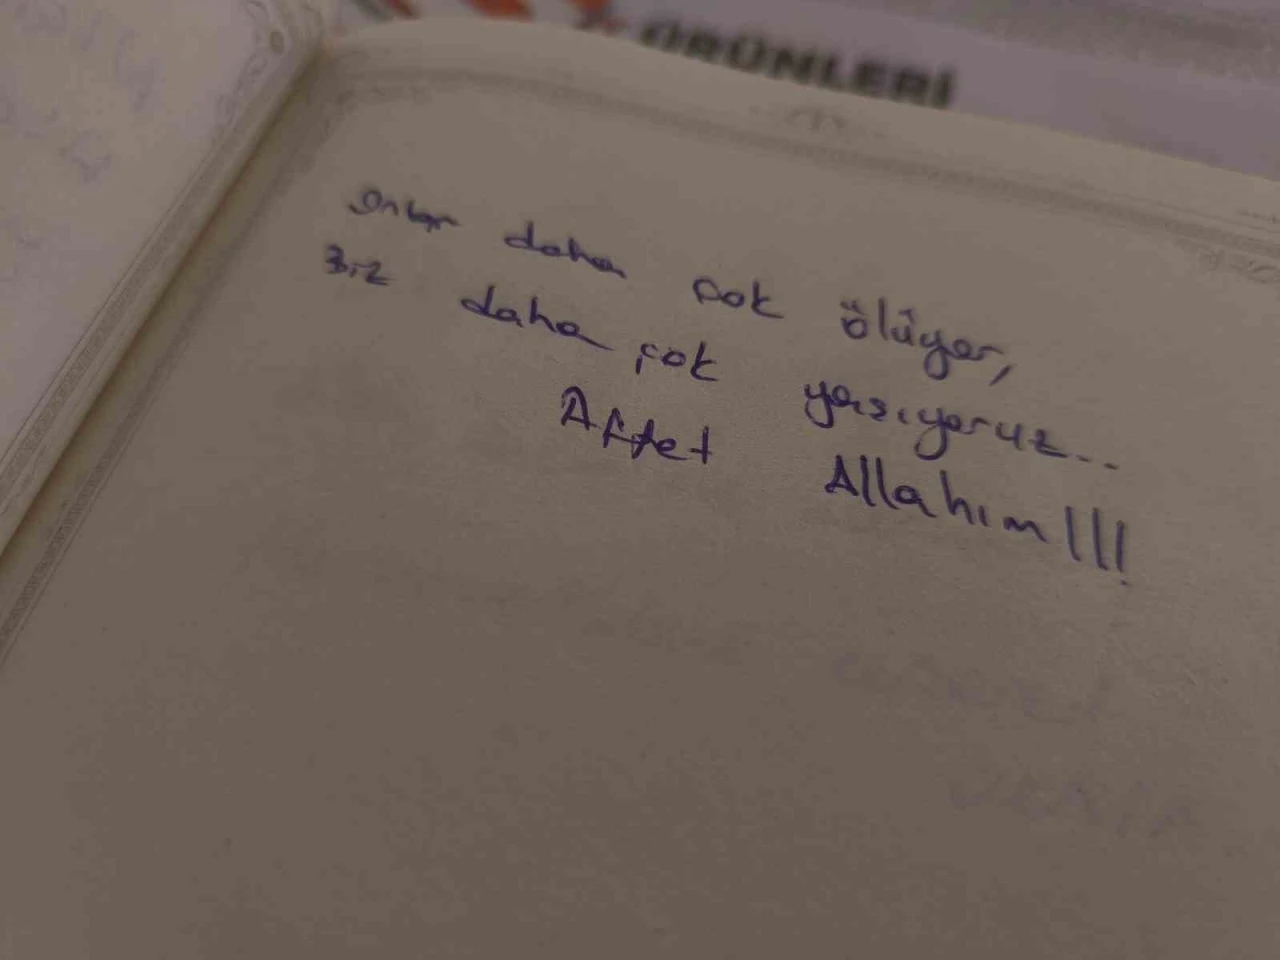 ÜRÜNLERİ
Onlar daha çok ölüyor,
Biz daha çok yaşıyoruz..
Affet Allahım!!!